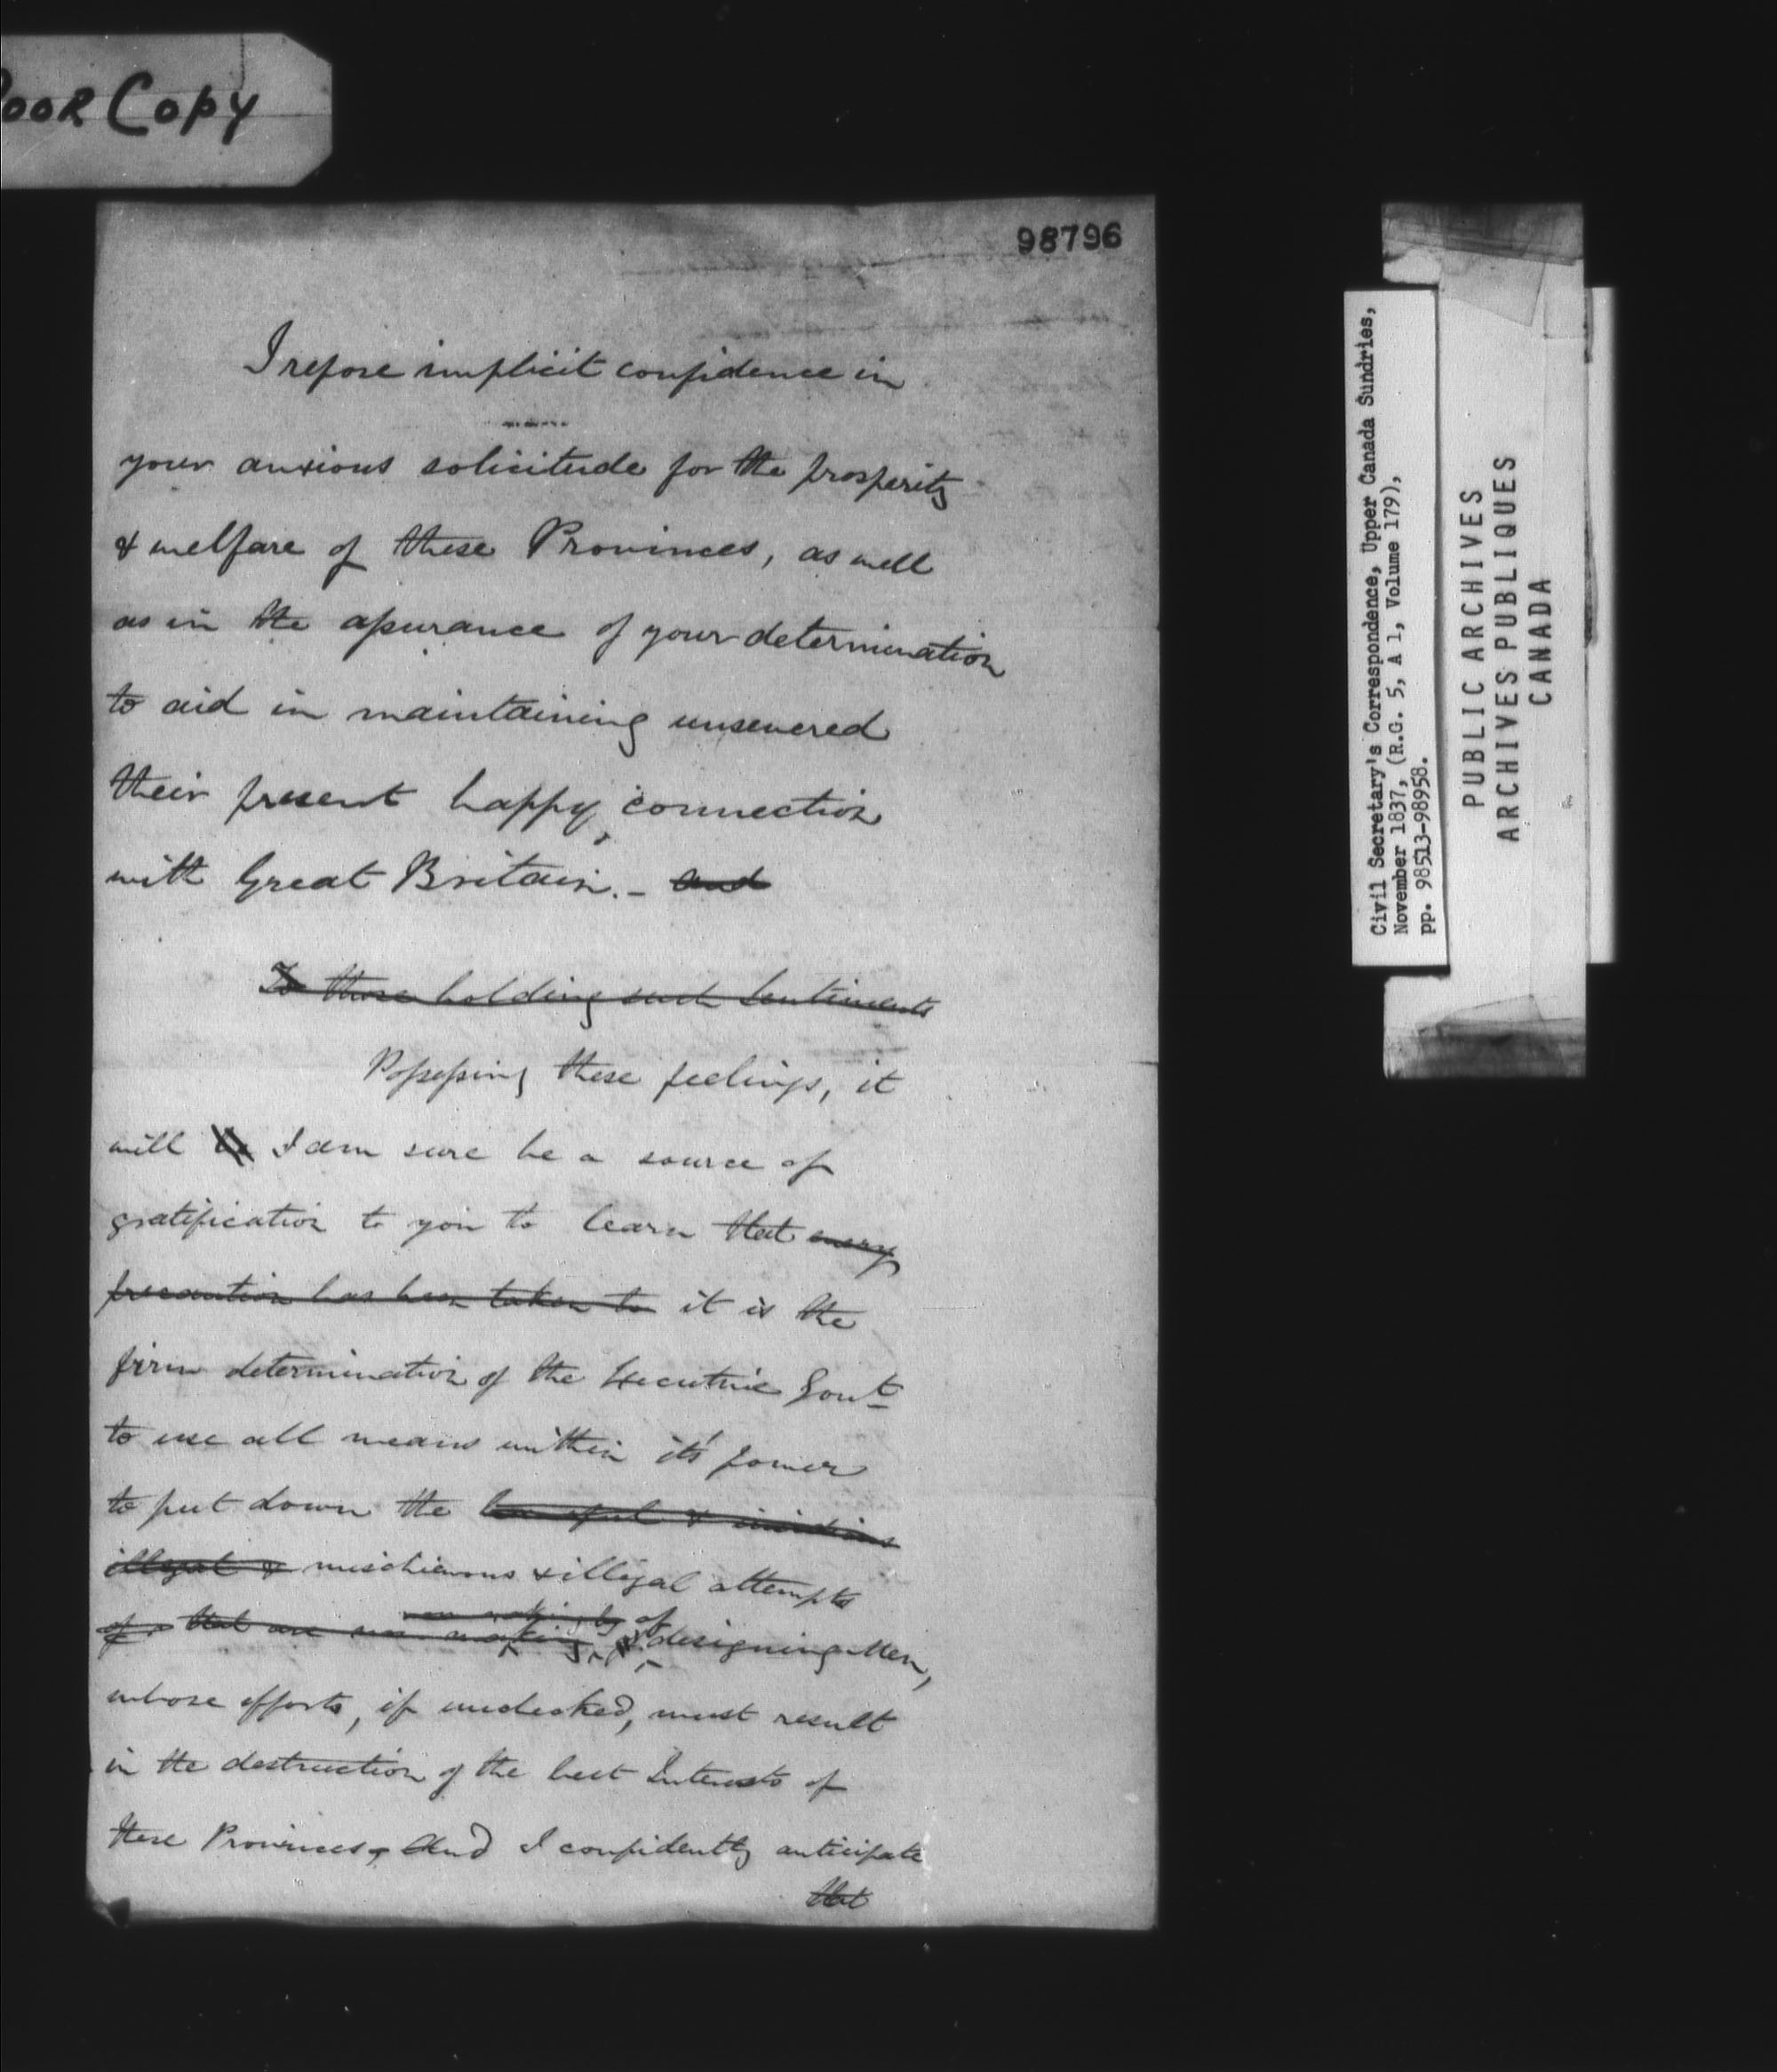 Poor Copy
98796
I repose implicit confidence in
your anxious solicitude for the prosperity
& welfare of these Provinces, as well
as in the assurance of your determination
to aid in maintaining unsevered
their present happy connection
with Great Britain. - and
To those holding such Sentiments
Possessing these feelings, it
will be I am sure be a source of
gratification to you to learn that every
precaution has been taken to it is the
firm determination of the Executive Govt
to use all means within it's power
to put down the
illegal & mischievous & illegal attempts
of
of that are making designing Men,
whose efforts, if unchecked, must result
in the destruction of the best Interests of
these Provinces, And I confidently anticipate
that
Civil Secretary's Correspondence, Upper Canada Sundries,
November 1837, (R.G. 5, A 1, Volume 179),
pp. 98513-98958.
PUBLIC ARCHIVES
ARCHIVES PUBLIQUES
CANADA